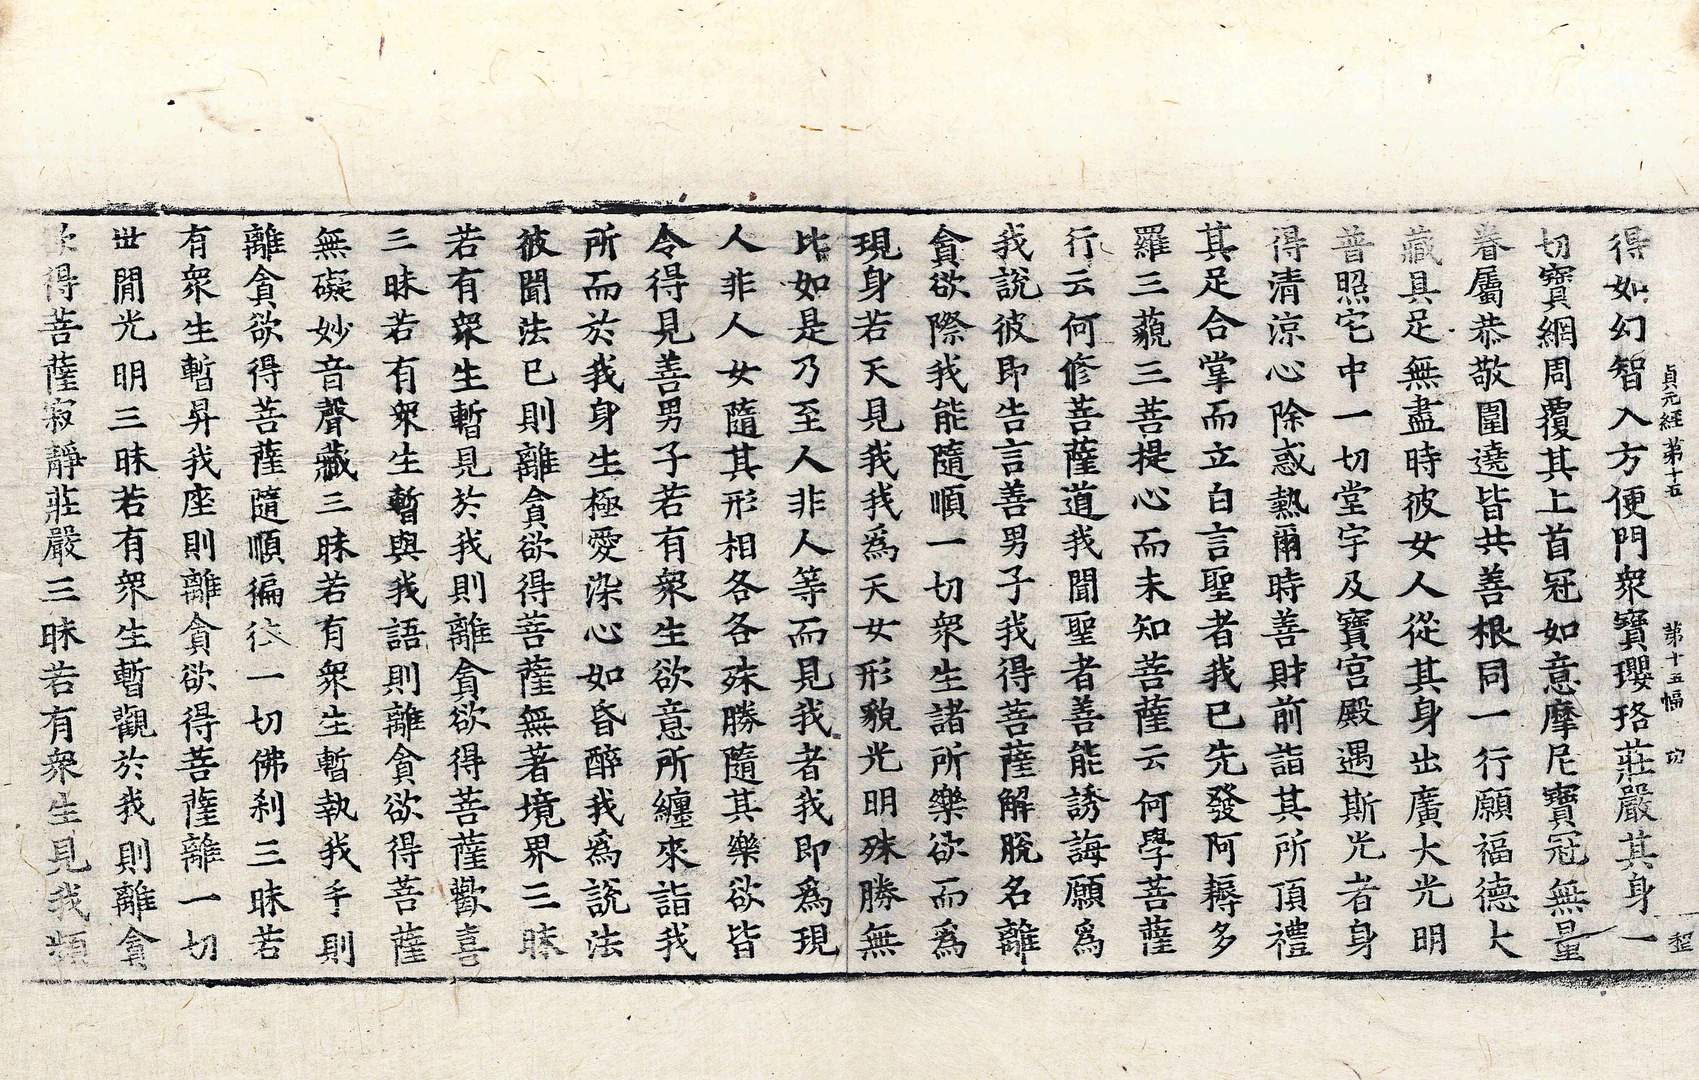 貞元經第十五 第十五幅 功 一 程
得如幻智入方便門衆寶瓔珞莊嚴其身一
切寶網周覆其上首冠如意摩尼寶冠無量
眷屬恭敬圍遶皆共善根同一行願福德大
藏具足無盡時彼女人從其身出廣大光明
普照宅中一切堂宇及寶宮殿遇斯光者身
得清涼心除惑熱爾時善財前詣其所頂禮
其足合掌而立白言聖者我已先發阿耨多
羅三藐三菩提心而未知菩薩云何學菩薩
行云何修菩薩道我聞聖者善能誘誨願爲
我說彼即告言善男子我得菩薩解脫名離
貪欲際我能隨順一切衆生諸所樂欲而爲
現身若天見我我爲天女形貌光明殊勝無
比如是乃至人非人等而見我者我即爲現
人非人女隨其形相各各殊勝隨其樂欲皆
令得見善男子若有衆生欲意所纏來詣我
所而於我身生極愛染心如昏醉我爲說法
彼聞法已則離貪欲得菩薩無著境界三昧
若有衆生暫見於我則離貪欲得菩薩歡喜
三昧若有衆生暫與我語則離貪欲得菩薩
無礙妙音聲藏三昧若有衆生暫執我手則
離貪欲得菩薩隨順徧往一切佛刹三昧若
有衆生暫昇我座則離貪欲得菩薩離一切
世間光明三昧若有衆生暫觀於我則離貪
欲得菩薩寂靜莊嚴三昧若有衆生見我頻